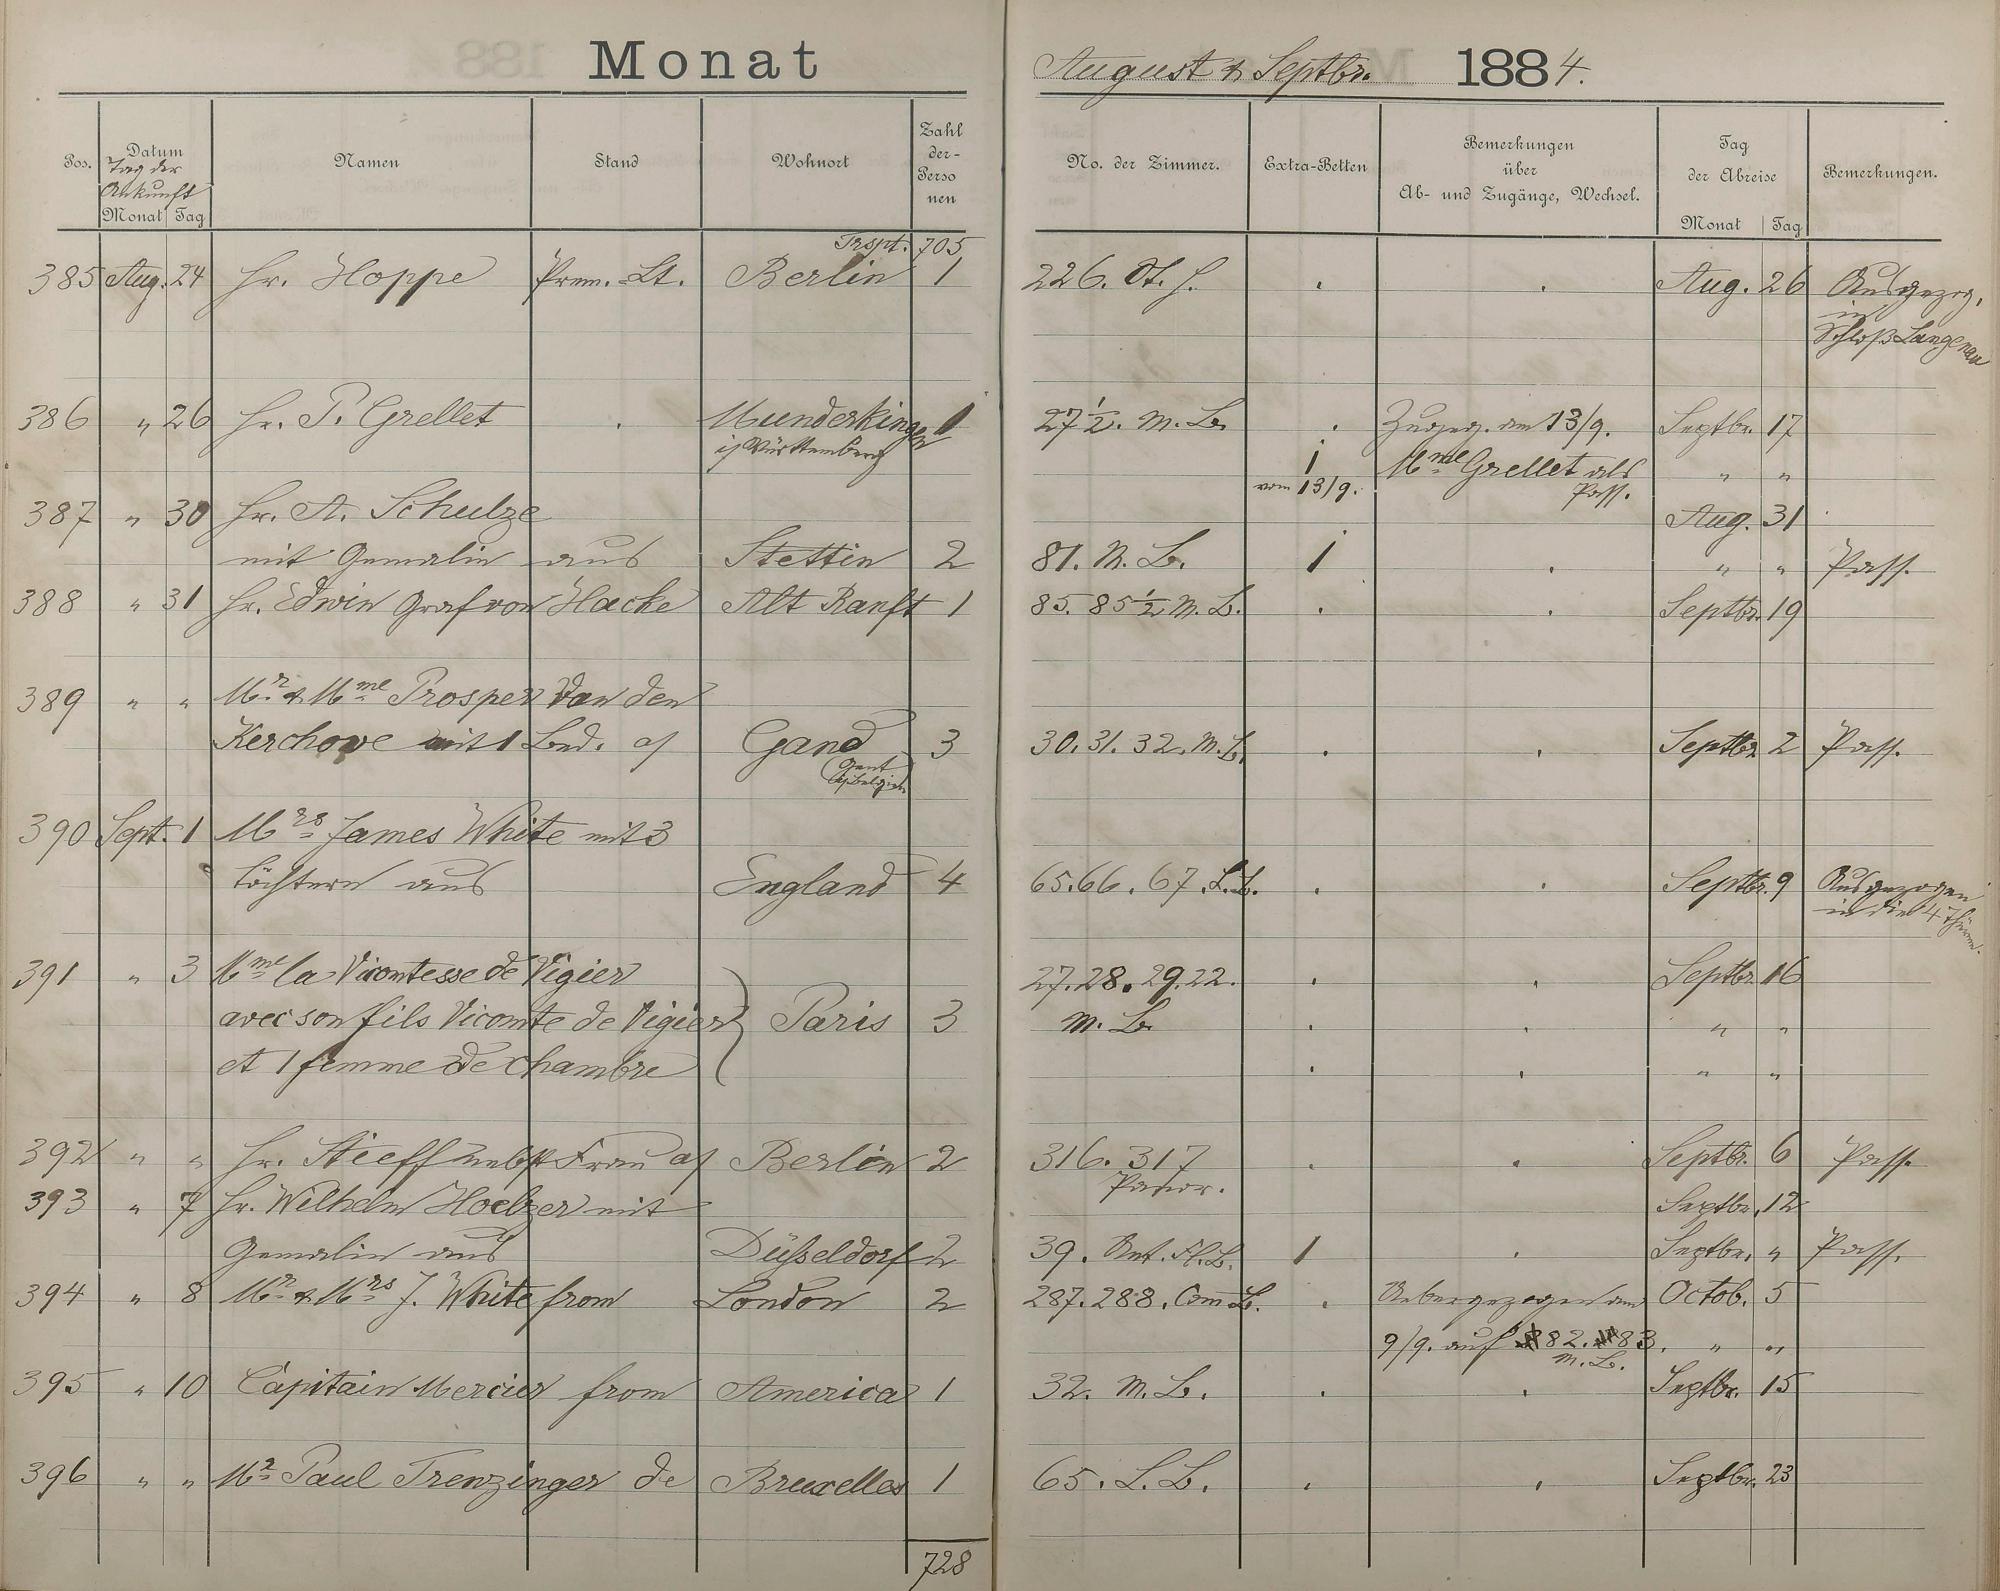 Monat August & Septbr. 1884.
Pos. Datum Namen Stand Wohnort Zahl der Perso nen No. der Zimmer. Extra-Betten Bemerkungen über Ab- und Zugänge, Wechsel. Tag der Abreise Bemerkungen.
Tag der Ankunft
Monat Tag Monat Tag
Trspt. 705
385 Aug. 24 Hr. Hoppe Prem. Lt. Berlin 1 226. Aug. 26 Ausgezog.
in
Schloß Langenau
386 " 26 Hr. P. Grellet Munderkingen 1 27½. M. B. Zugez. am 13/9. Septbr. 17
i/Württemberg 1 Mme Grellet als " "
vom 13/9. Pass.
387 " 30 Hr. A. Schulze Aug. 31
mit Gemalin aus Stettin 2 81. M. B. 1 " " Pass.
388 " 31 Hr. Edwin Graf von Hacke Alt Ranft 1 85. 85½ M. B. Septbr. 19
389 " " Mr & Mme Prosper Van den
Kerchove mit 1 Bed. a/ Gand 3 30. 31. 32. M. B. Septbr. 2 Pass.
(Gent
i/Belgien)
390 Sept. 1 Mrs James White mit 3
Töchtern aus England 4 65. 66. 67. L. B. Septbr. 9 Ausgezogen
in die 4 Thürme.
391 " 3 Mme la Vicomtesse de Vigier 27. 28. 29. 22. Septbr. 16
avec son fils Vicomte de Vigier Paris 3 M. B. " "
et 1 femme de chambre " "
392 " " Hr. Stieff nebst Frau a/ Berlin 2 316. 317 Septbr. 6 Pass.
Panor.
393 " 7 Hr. Wilhelm Hoelzer mit Septbr. 12
Gemalin aus Düsseldorf 2 39. 1 Septbr. " Pass.
394 " 8 Mr & Mrs J. White from London 2 287. 288. B. Uebergezogen am Octob. 5
9/9. auf 82. 83. " "
M. B.
395 " 10 Capitain Mercier from America 1 32. M. B. Septbr. 15
396 " " Mr Paul Trenzinger de Bruxelles 1 65. L. B. Septbr. 23
728